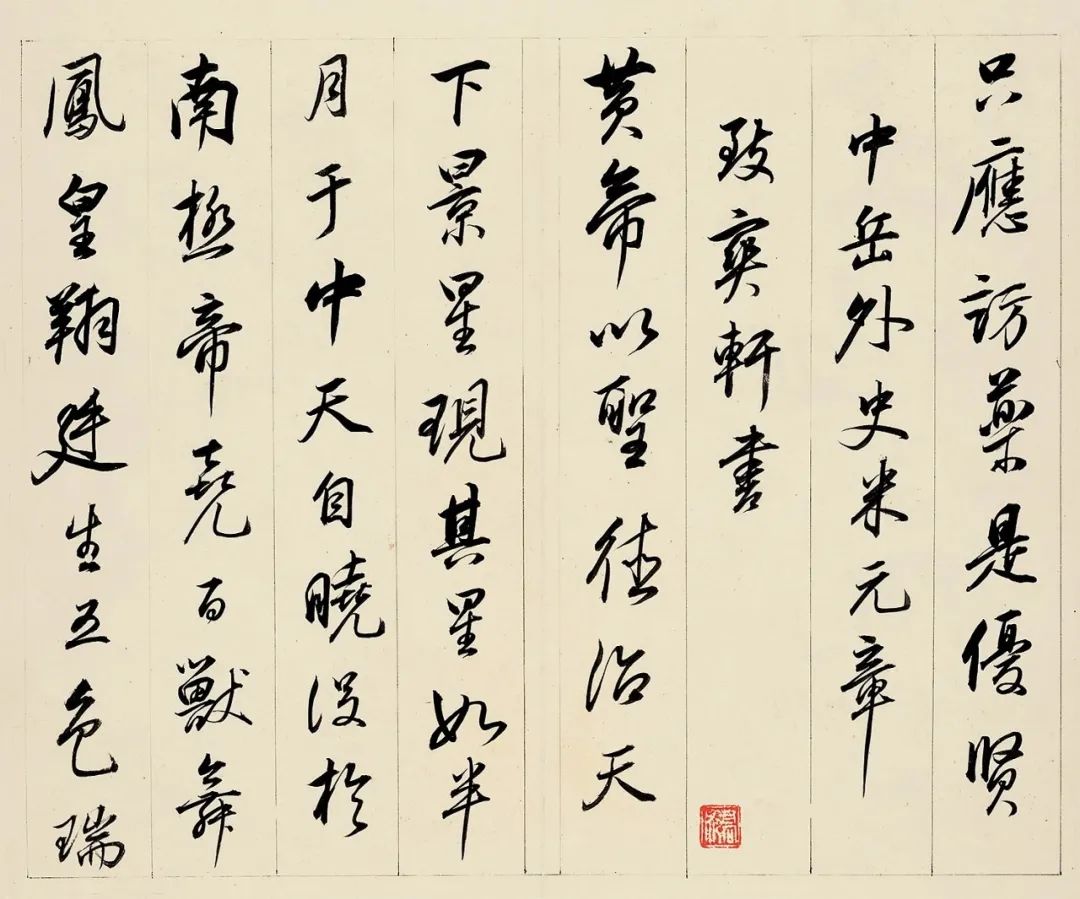 只應訪藥是優賢
中岳外史米元章
致爽軒書
黄帝以聖德治天
下景星現其星如半
月于中天自曉没於
南極帝堯百獸舞
鳳皇翔廷生五色瑞